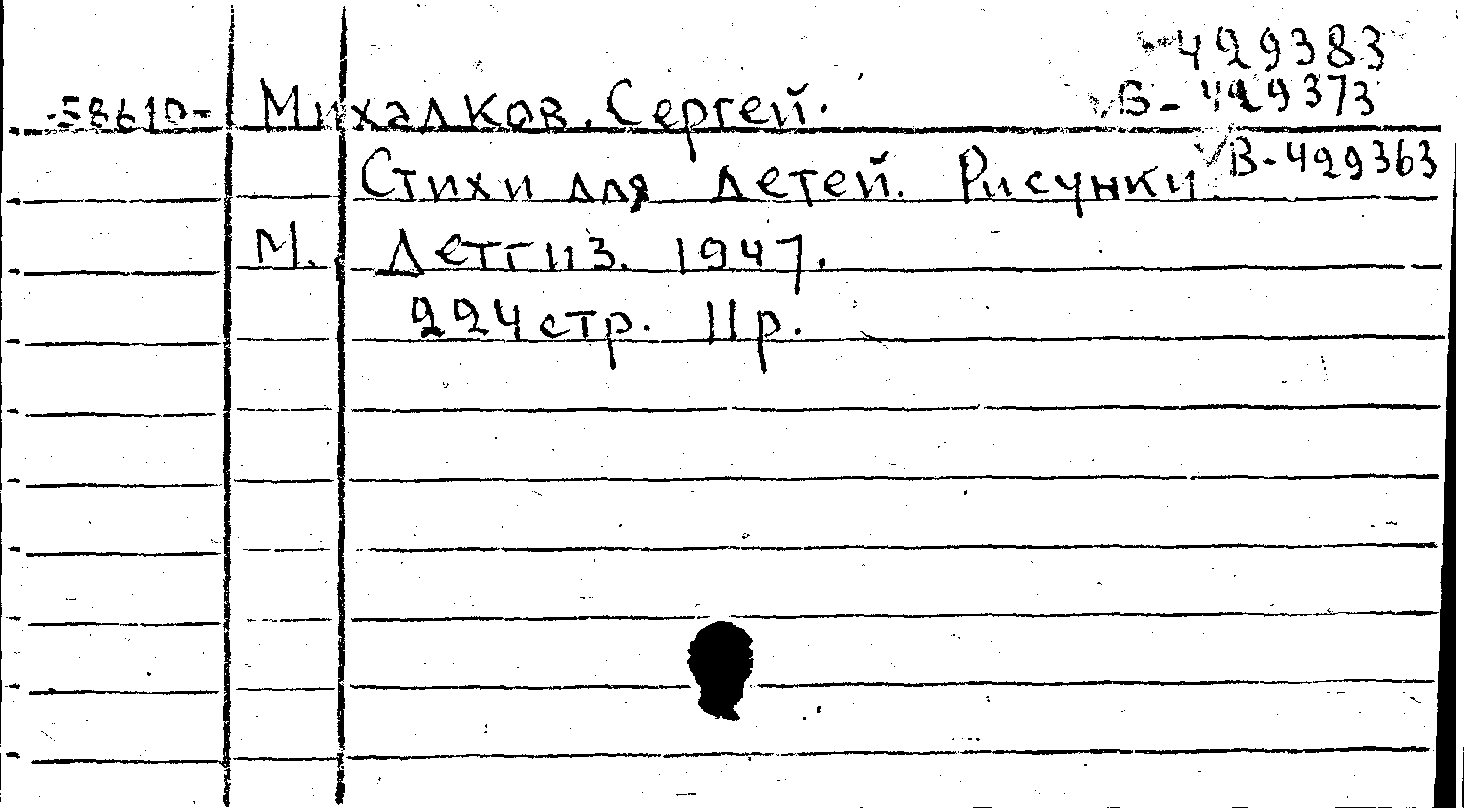 429383
-58610- Михалков. Сергей. В-429373
Стихи для детей. Рисунки В-429363
М. Детгиз. 1947.
224 стр. 11р.